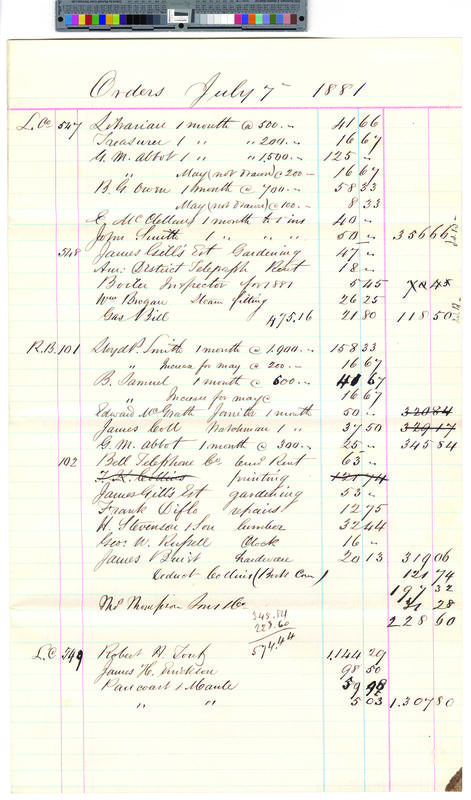 Orders July 7 1881
L. Co 547 Librarian 1 month @ 500.„ 41 66
Treasurer 1 „ „ 200.„ 16 67
G. M. abbot 1 „ „ 1,500.„ 125 „
„ May (not drawn) @ 200 „ 16 67
B. G. Owen 1 month @ 700.„ 58 33
May (not drawn) @ 100.„ 8 33
E McClellan 1 month to 1 ins 40 „
John Smith 1 „ „ „ 50 „ 356 66
548 James Gill's Est Gardening 47 „
Am: District Telegraph Rent 18 „
Boiler Inspector for 1881 5 45
Wm Brogan Steam fitting 26 25
Gas Bill 475.16 21 80 118 50
R.B. 101 Lloyd P. Smith 1 month @ 1.900.„ 158 33
„ Increa for may @ 200.„ 16 67
B. Samuel 1 month @ 500.„ 41 67
„ Increase for may @ 16 67
Edward McGrath Janitor 1 month 50 „ 320 84
James Coll Watchman 1 „ 37 50 329 17
G. M. abbot 1 month @ 300.„ 25 „ 345 84
102 Bell Telephone Co Rent 63 „
T. K. Collins printing 121 74
James Gill's Est gardening 53 „
Frank Diflo repairs 12 75
W. Stevenson & Son lumber 32 44
Geo: W. Russell Clock 16 „
James Buist hardware 20 13 319 06
Deduct Collins (Book Com) 121 74
197 32
Thos Thompson Sons & Co 31 28
228 60
345.84
228.60
574.44
L.C. 549 Robert A. 1,144 29
James H. 98 50
Rancourt & Maule 59 98
„ „ 5 03 1.307 80